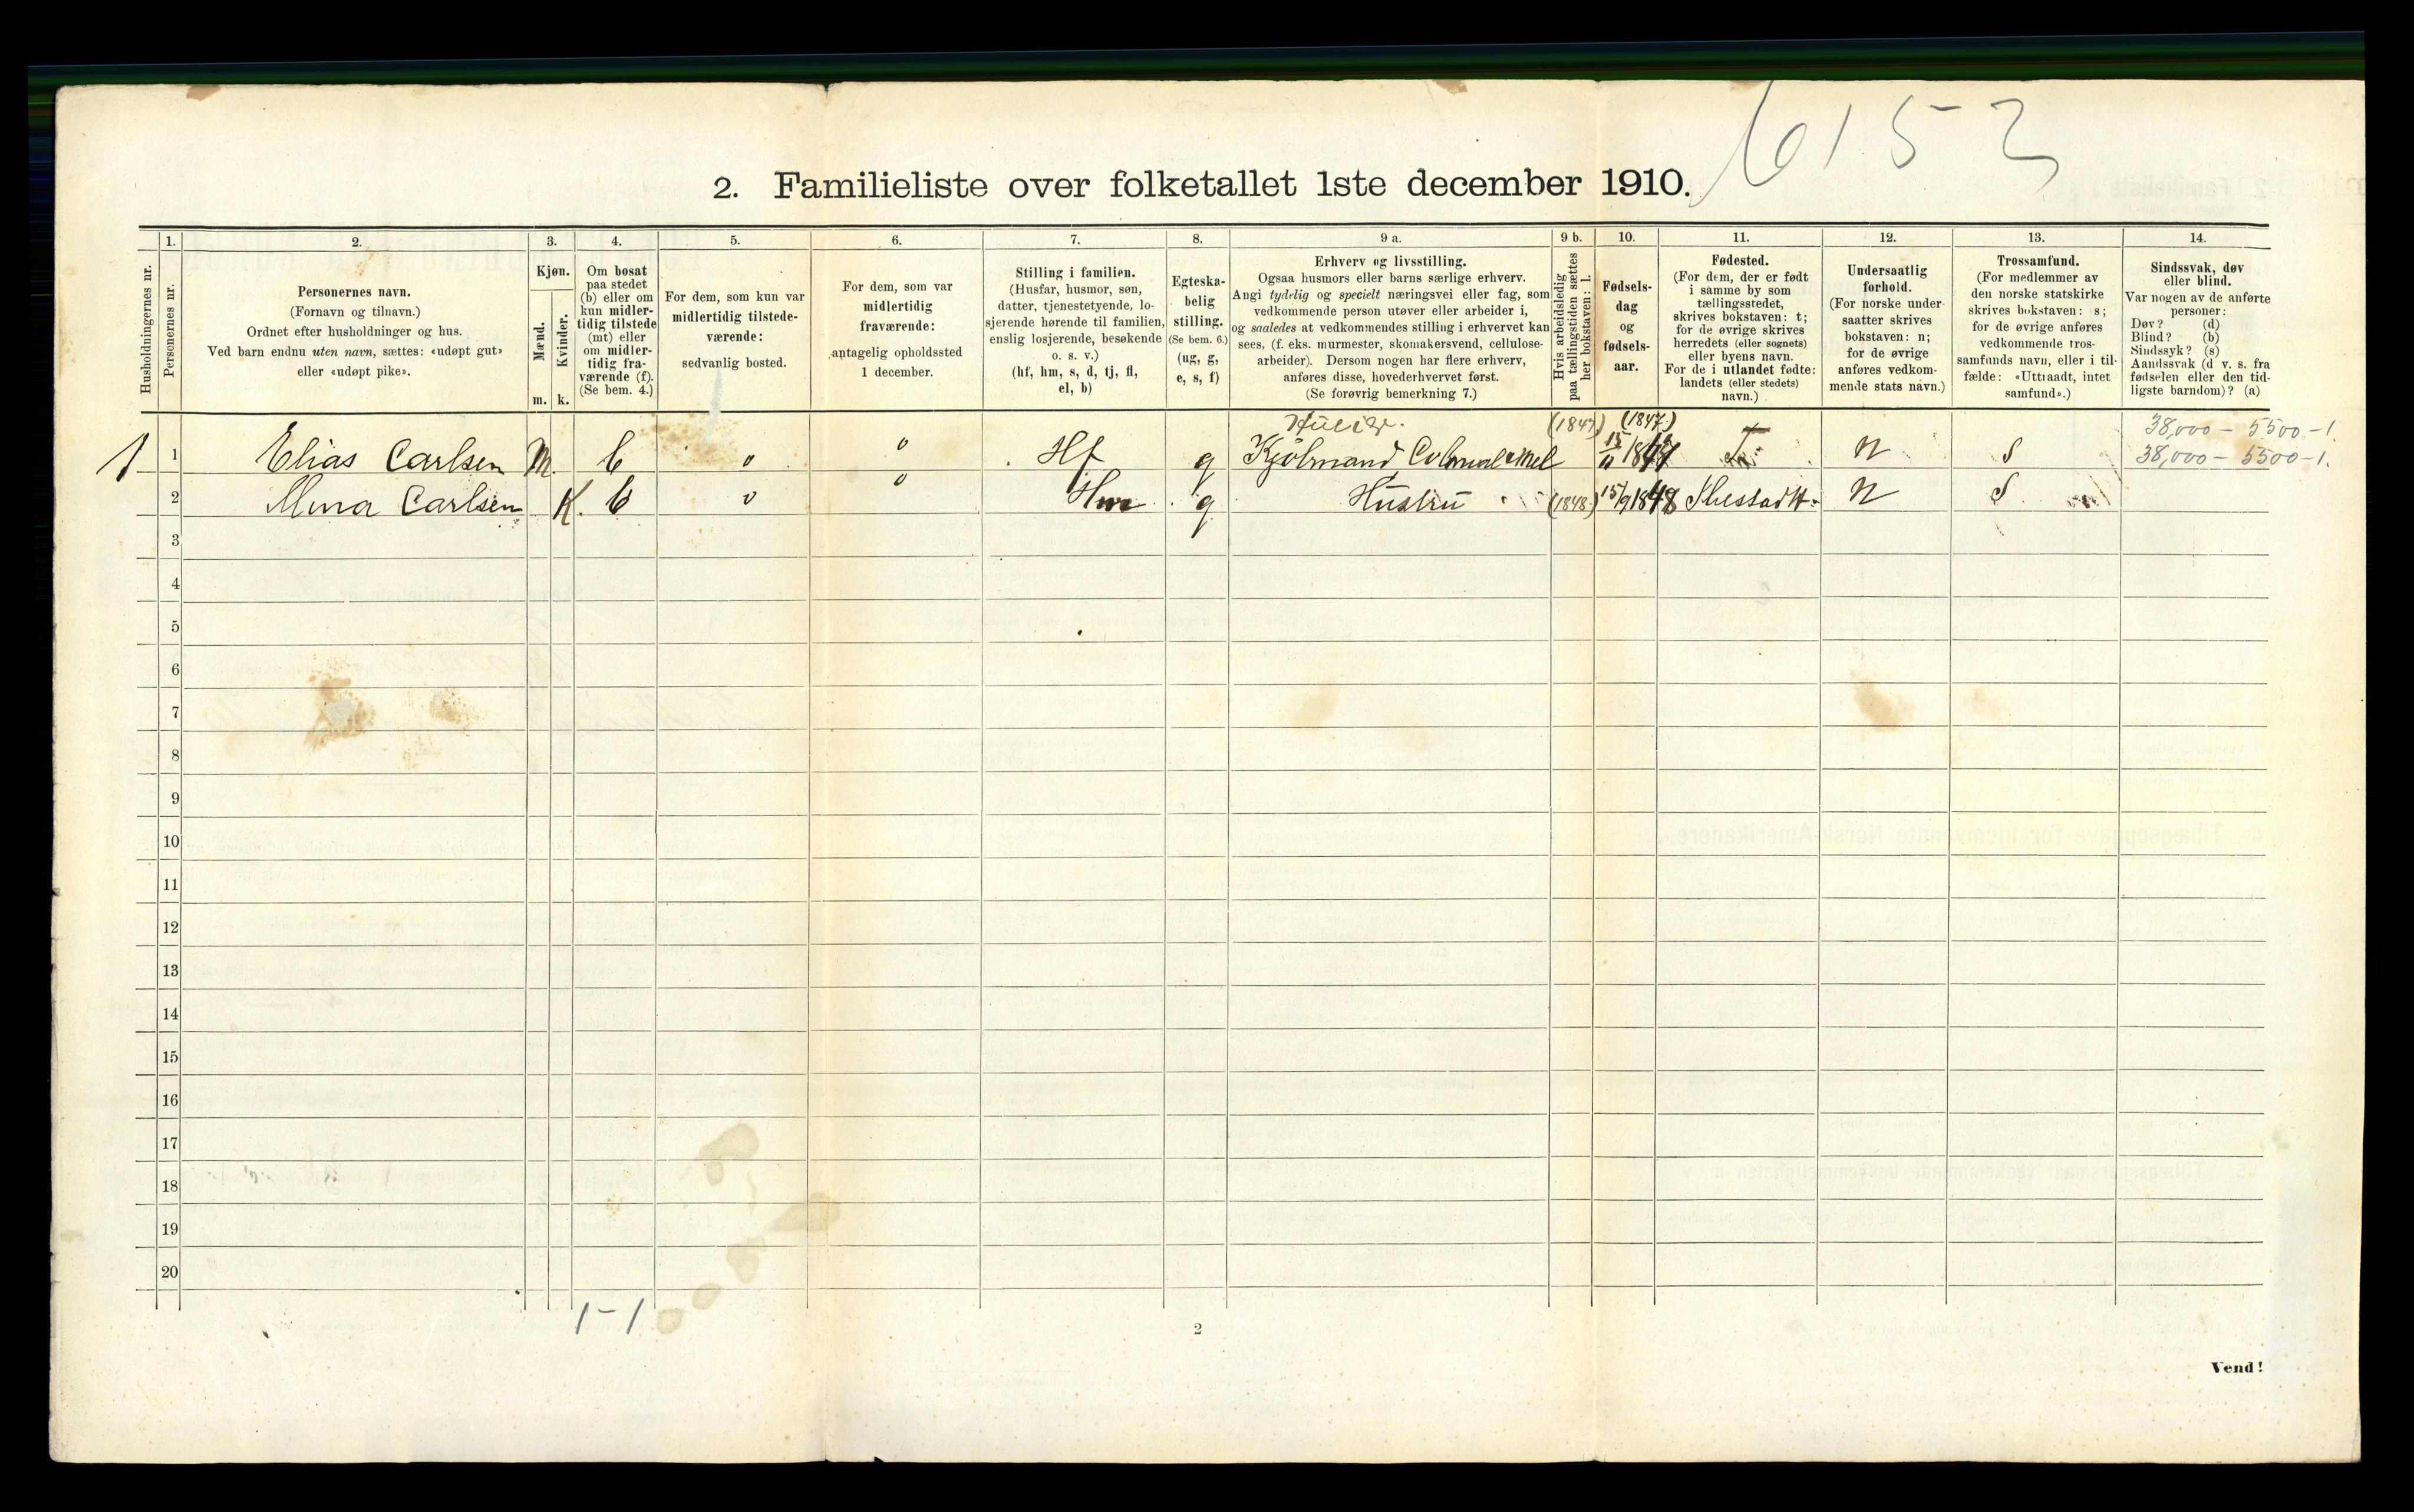 6153
2. Familieliste over folketallet 1ste december 1910.
Husholdningernes nr.
1.
Personernes nr.
2.
Personernes navn.
(Fornavn og tilnavn.)
Ordnet efter husholdninger og hus.
Ved barn endnu uten navn, sættes: «udøpt gut»
eller «udøpt pike».
3.
Kjøn.
Mænd.
m.
Kvinder.
k.
4.
Om bosat
paa stedet
(b) eller om
kun midler-
tidig tilstede
(mt) eller
om midler-
tidig fra-
værende (f).
(Se bem. 4.)
5.
For dem, som kun var
midlertidig tilstede-
værende:
sedvanlig bosted.
6.
For dem, som var
midlertidig
fraværende:
antagelig opholdssted
1 december.
7.
Stilling i familien.
(Husfar, husmor, søn,
datter, tjenestetyende, lo-
sjerende hørende til familien,
enslig losjerende, besøkende
o. s. v.)
(hf, hm, s, d, tj, fl,
el, b)
8.
Egteska-
belig
stilling.
(Se bem. 6.)
(ug, g,
e, s, f)
9 a.
Erhverv og livsstilling.
Ogsaa husmors eller barns særlige erhverv.
Angi tydelig og specielt næringsvei eller fag, som
vedkommende person utøver eller arbeider i,
og saaledes at vedkommendes stilling i erhvervet kan
sees, (f. eks. murmester, skomakersvend, cellulose-
arbeider). Dersom nogen har flere erhverv,
anføres disse, hovederhvervet først.
(Se forøvrig bemerkning 7.)
9 b.
Hvis arbeidsledig
paa tællingstiden sættes
her bokstaven: l.
10.
Fødsels-
dag
og
fødsels-
aar.
11.
Fødested.
(For dem, der er født
i samme by som
tællingsstedet,
skrives bokstaven: t;
for de øvrige skrives
herredets (eller sognets)
eller byens navn.
For de i utlandet fødte:
landets (eller stedets)
navn.)
12.
Undersaatlig
forhold.
(For norske under-
saatter skrives
bokstaven: n;
for de øvrige
anføres vedkom-
mende stats navn.)
13.
Trossamfund.
(For medlemmer av
den norske statskirke
skrives bokstaven: s;
for de øvrige anføres
vedkommende tros-
samfunds navn, eller i til-
fælde: «Uttraadt, intet
samfund».)
14.
Sindssvak, døv
eller blind.
Var nogen av de anførte
personer:
Døv? (d)
Blind? (b)
Sindssyk? (s)
Aandssvak (d. v. s. fra
fødselen eller den tid-
ligste barndom)? (a)
(1847) (1847) 38,000 – 5500 – 1.
1 1 Elias Carlsen M. b 0 0 Hf g Kjölmand Colonial & Mel 15/11 1847 T N S 38,000 – 5500 – 1.
2 Mina Carlsen K. b 0 0 Hm g Hustru (1848) 15/9 1848 N S
3
4
5
6
7
8
9
10
11
12
13
14
15
16
17
18
19
20
1–1
2
Vend!